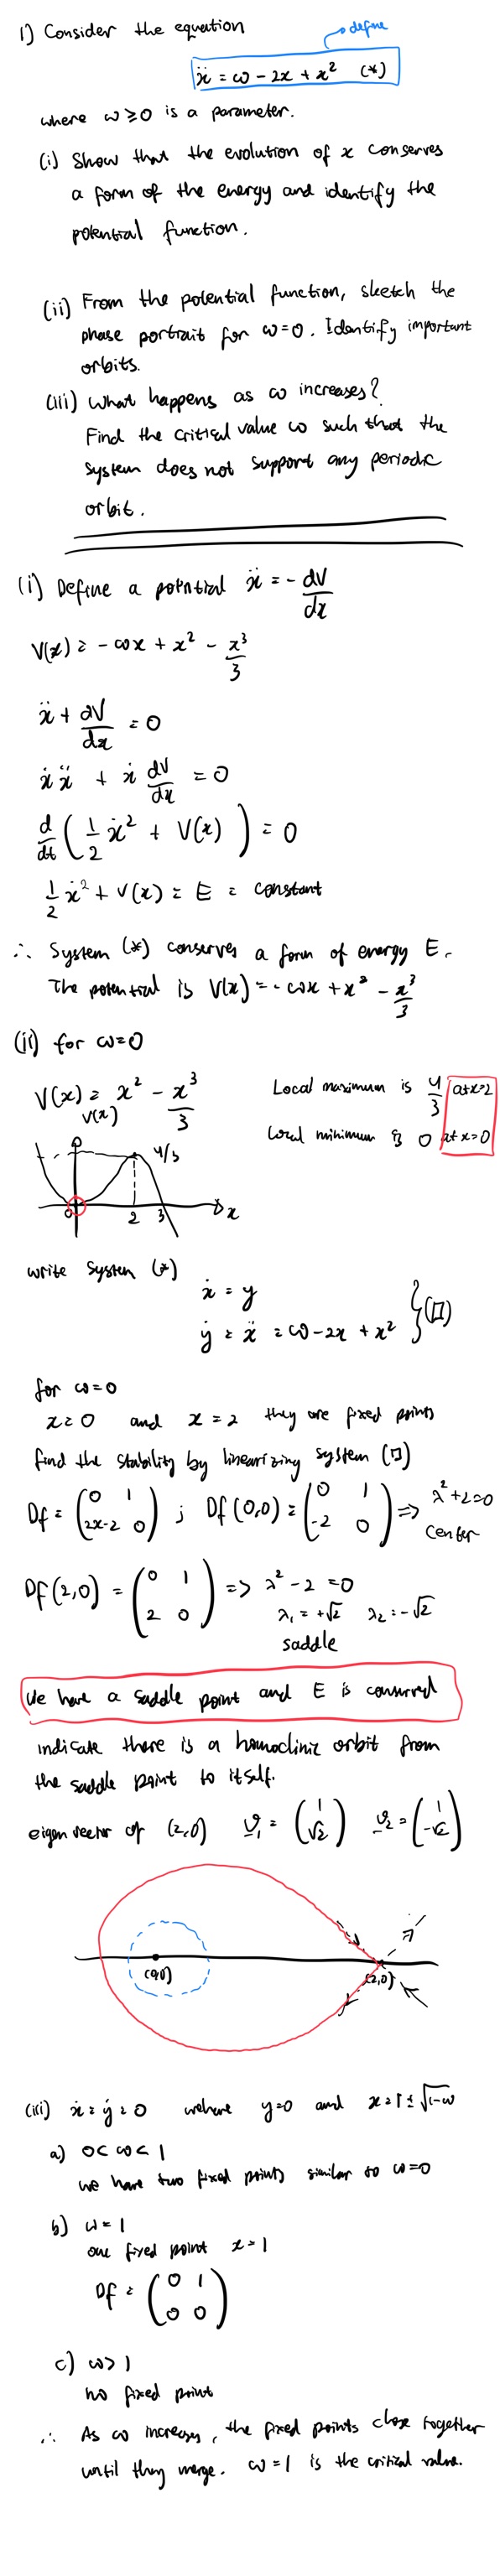 1) Consider the equation
define
ẍ = ω - 2x + x² (*)
where ω ≥ 0 is a parameter.
(i) Show that the evolution of x conserves
a form of the energy and identify the
potential function.
(ii) From the potential function, sketch the
phase portrait for ω=0. Identify important
orbits.
(iii) What happens as ω increases?
Find the critical value ω such that the
system does not support any periodic
orbit.
(i) Define a potential ẍ = - dV/dx
V(x) = - ωx + x² - x³/3
ẍ + dV/dx = 0
ẋẍ + ẋ dV/dx = 0
d/dt ( 1/2 ẋ² + V(x) ) = 0
1/2 ẋ² + V(x) = E = constant
∴ System (*) conserves a form of energy E.
The potential is V(x) = - ωx + x² - x³/3
(ii) for ω=0
V(x) = x² - x³/3
Local maximum is 4/3 at x=2
Local minimum is 0 at x=0
V(x)
4/3
0 2 3 x
write system (*)
ẋ = y
ẏ = ẍ = ω - 2x + x² } (□)
for ω=0
x=0 and x=2 they are fixed points
find the stability by linearizing system (□)
Df = (0 1; 2x-2 0) ; Df(0,0) = (0 1; -2 0) => λ²+2=0
center
Df(2,0) = (0 1; 2 0) => λ² - 2 = 0
λ₁ = +√2 λ₂ = -√2
saddle
We have a saddle point and E is conserved
indicate there is a homoclinic orbit from
the saddle point to itself.
eigenvector of (2,0) v₁ = (1; √2) v₂ = (1; -√2)
(0,0)
(2,0)
(iii) ẋ = ẏ = 0 we have y=0 and x = 1 ± √1-ω
a) 0 < ω < 1
we have two fixed points similar to ω=0
b) ω = 1
one fixed point x = 1
Df = (0 1; 0 0)
c) ω > 1
no fixed point
∴ As ω increases, the fixed points close together
until they merge. ω = 1 is the critical value.